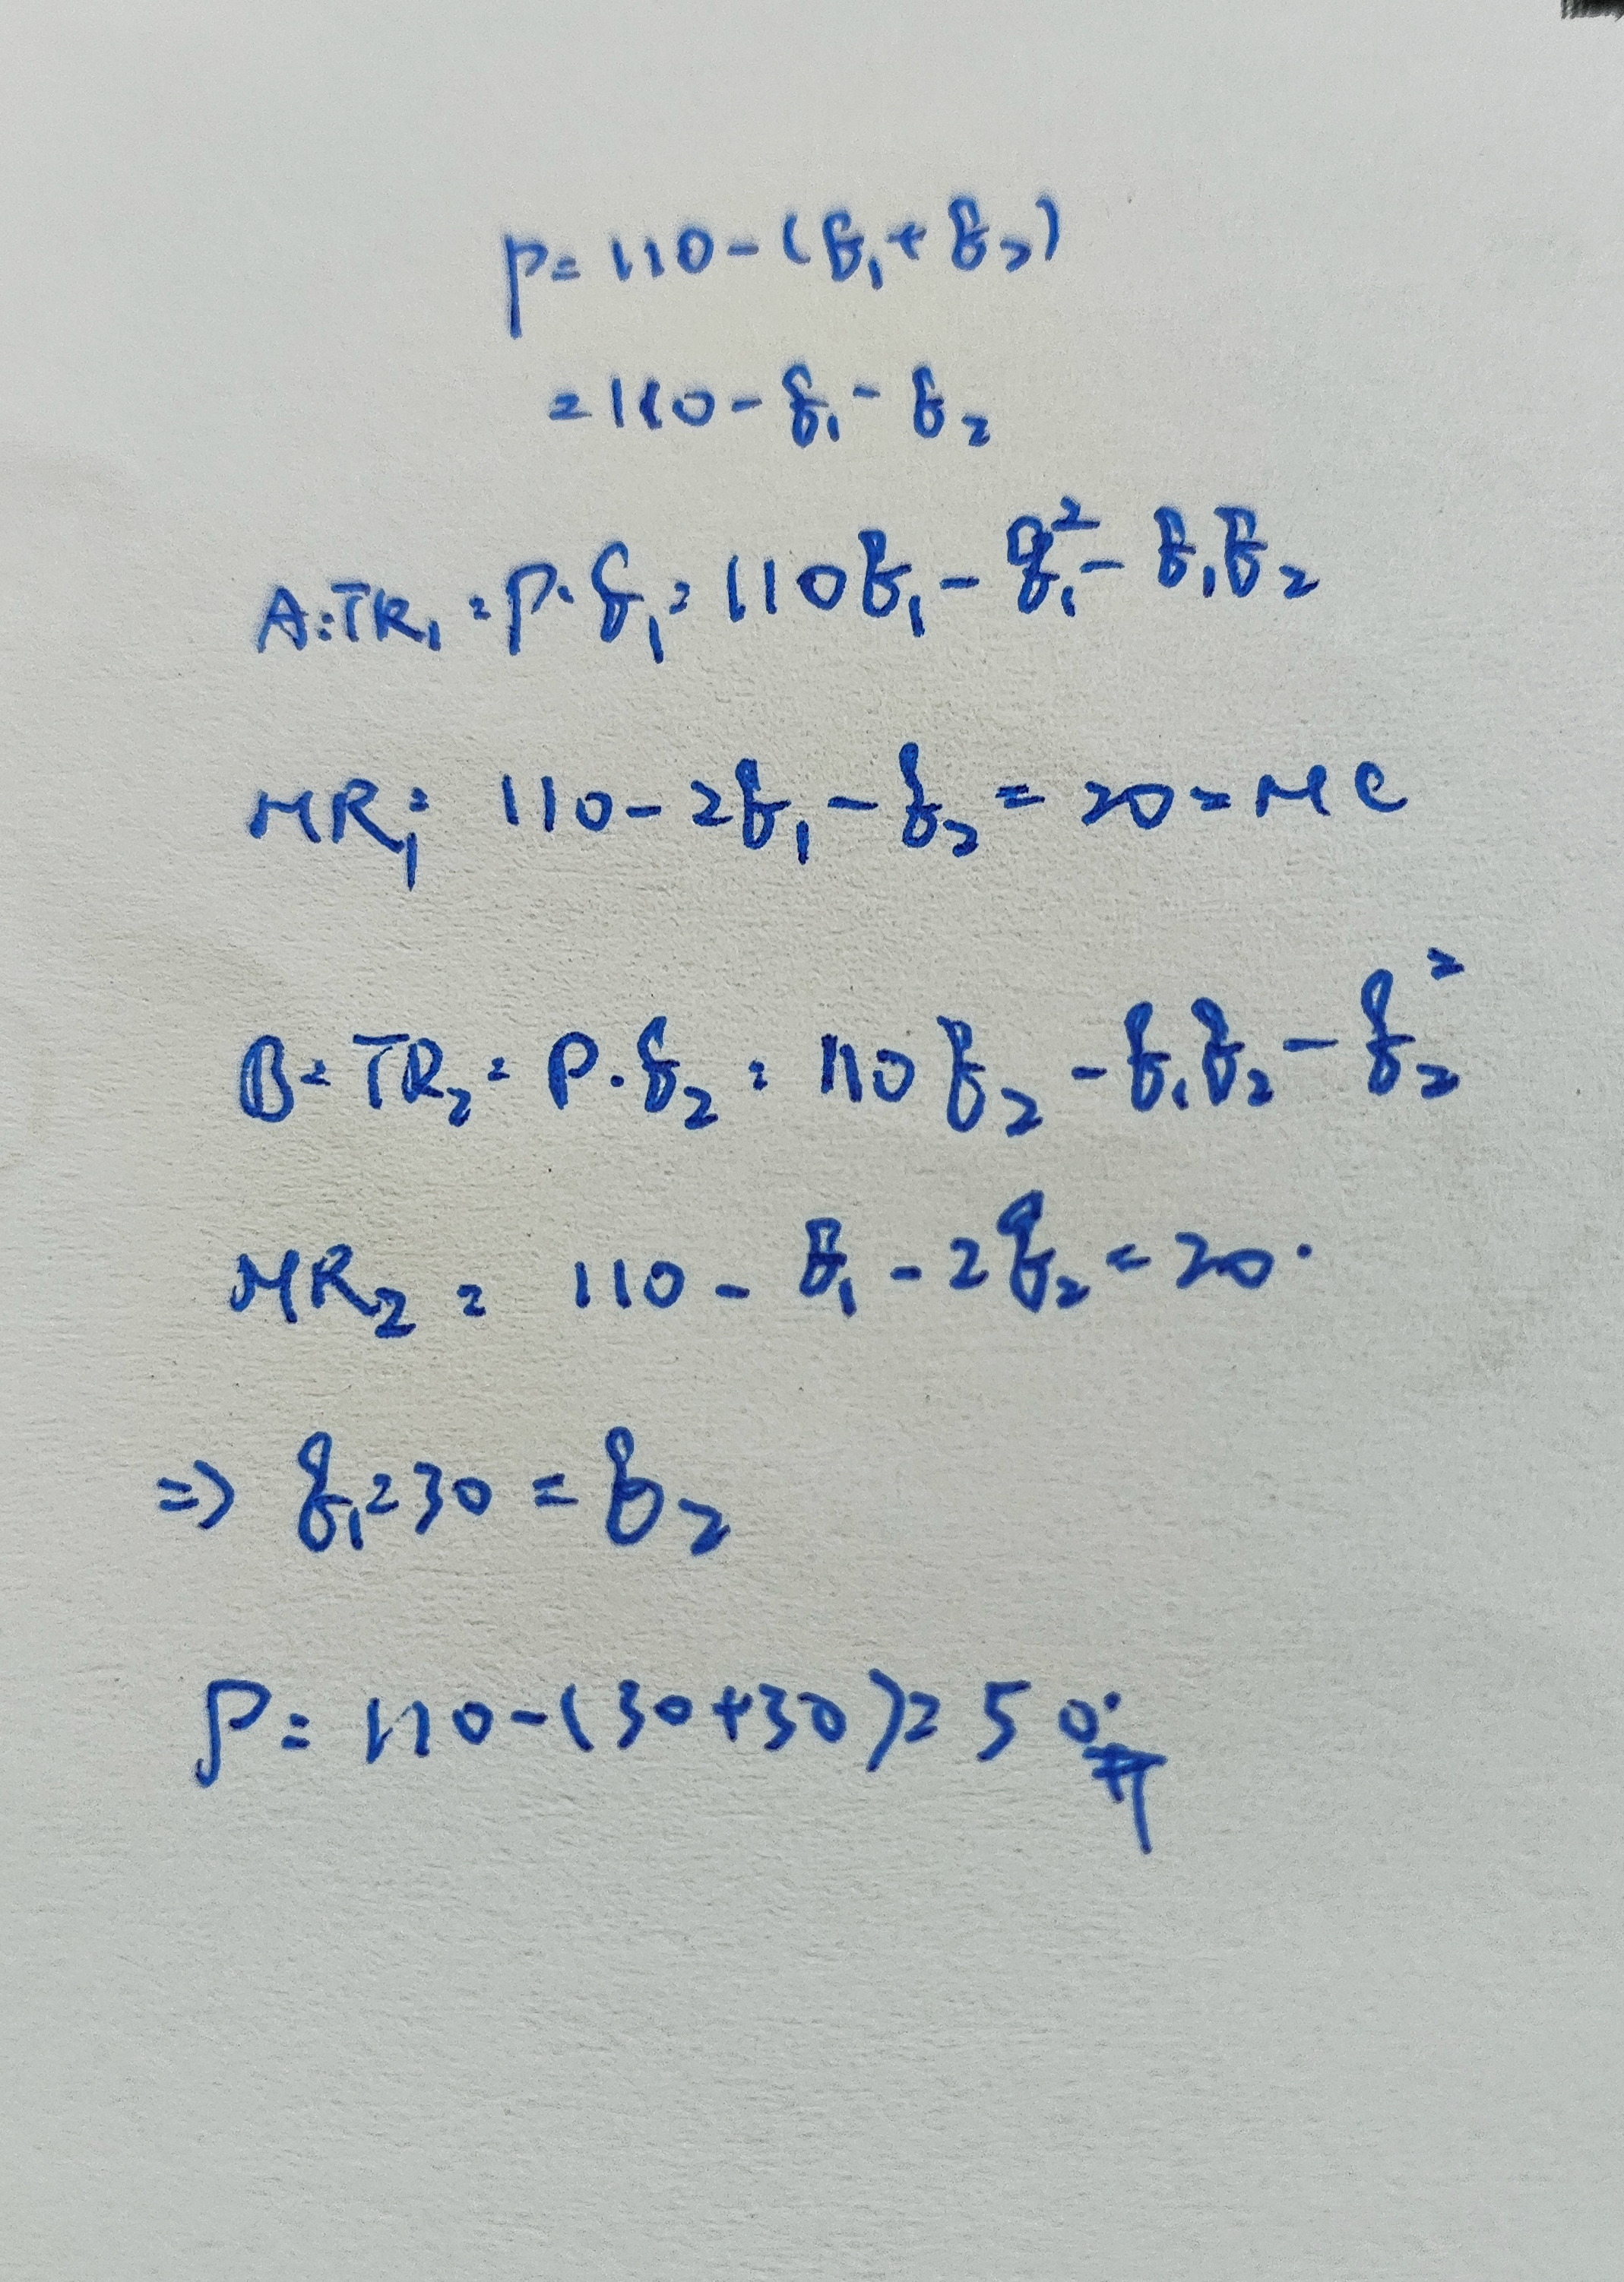 P = 110 - (q₁ + q₂)
= 110 - q₁ - q₂
A: TR₁ = P · q₁ = 110q₁ - q₁² - q₁q₂
MR₁ = 110 - 2q₁ - q₂ = 20 = MC
B: TR₂ = P · q₂ = 110q₂ - q₁q₂ - q₂²
MR₂ = 110 - q₁ - 2q₂ = 20.
⇒ q₁ = 30 = q₂
P = 110 - (30 + 30) = 50